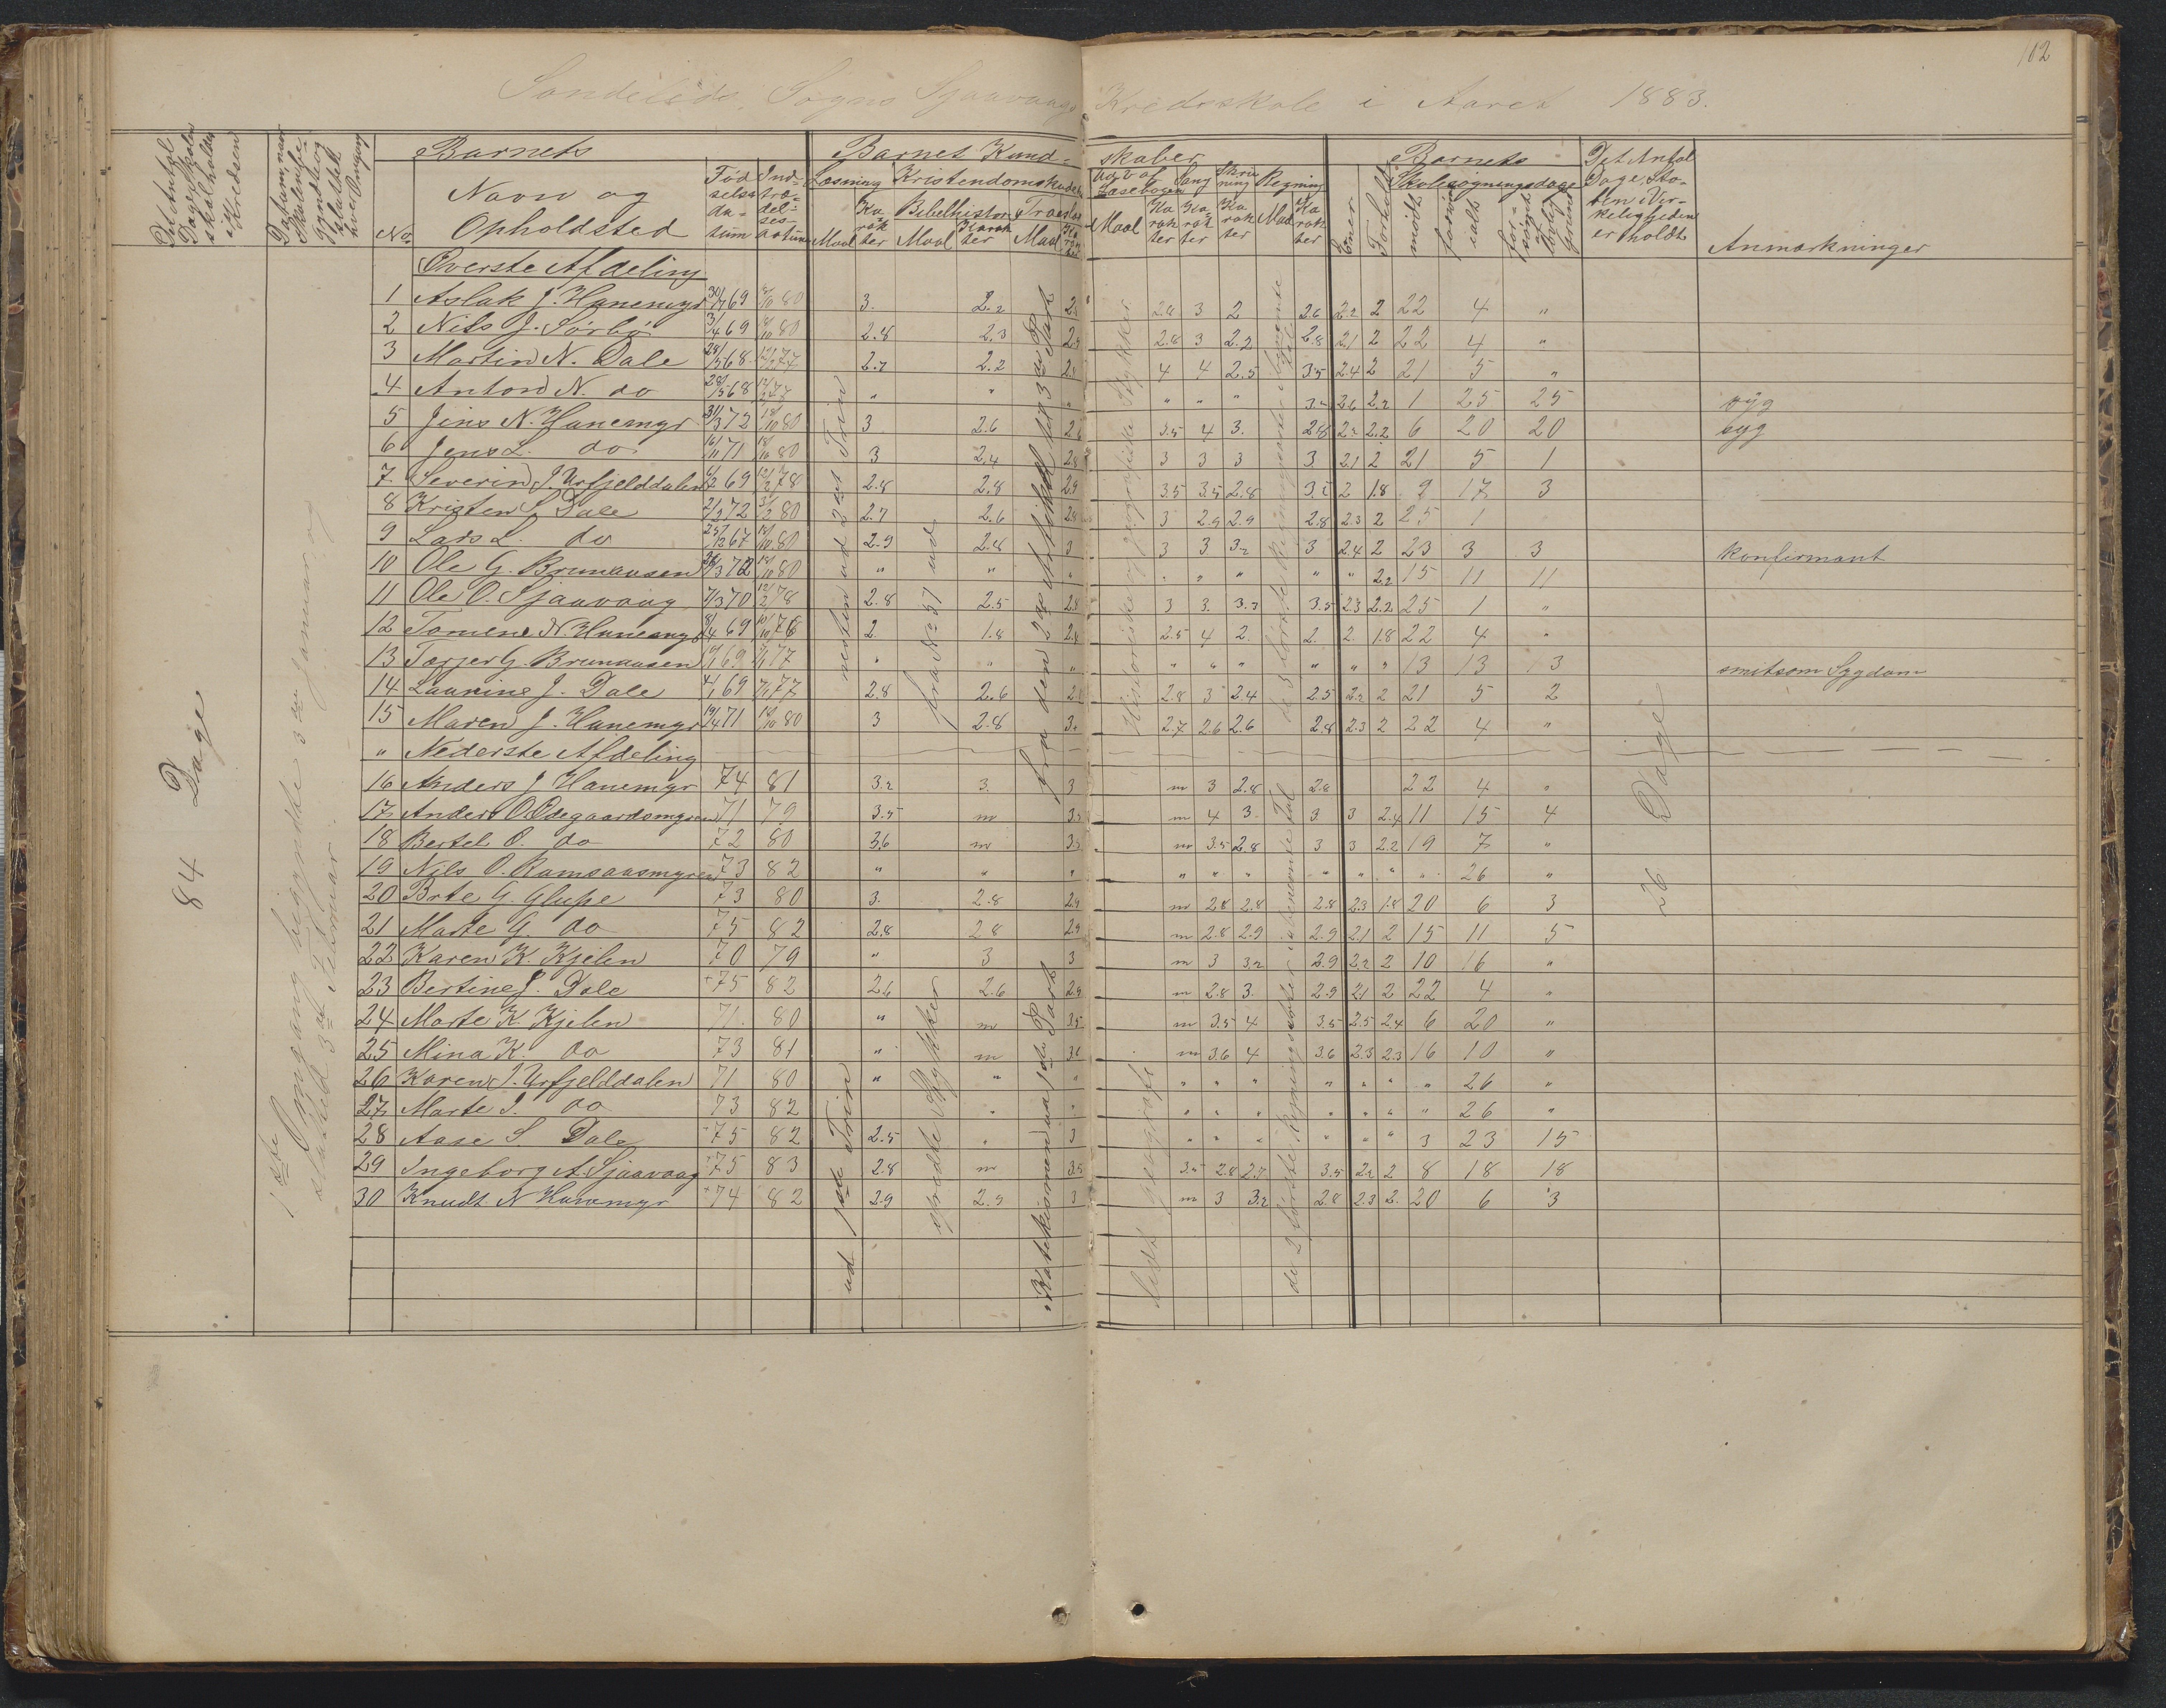 102
Søndeleds Sogns Sjaavaags Kredsskole i Aaret 1883.
Det Antal Dage Skolen skal holdes i Kredsen
Datum, naar Skolen begyndte og sluttet hver Omgang
Barnets
No
Navn og Opholdsted
Fødselsdatum
Indtrædelsesdatum
Barnet Kundskaber
Læsning
Maal
Karakter
Kristendomskundskab
Bibelhistorie
Maal
Karakter
Troeslære
Maal
Karakter
Udvalg af Læsebogen
Maal
Karakter
Sang
Karakter
Skrivning
Karakter
Regning
Maal
Karakter
Evner
Forhold
Barnets Skolesøgningsdage
mødt
forsømt ialt
forsømt af lovlig Grund
Det Antal Dage, Skolen i Virkeligheden er holdt
Anmærkninger
84 Dage
1ste Omgang begyndte 3die Januar og sluttede 3die Februar
Øverste Afdeling
1 Aslak J. Hanemyr 69 80 3. 2.2 2.8 3 2 2.6 2.2 2 22 4 "
2 Nils J. Sørbø 69 80 2.8 2.3 2.8 3 2.2 2.8 2.1 2 22 4 "
3 Martin N. Dale 68 77 2.7 2.2 4 4 2.5 3.5 2.4 2 21 5 "
4 Anton N. do 68 78 " " " " " " 2.6 2.2 1 25 25 syg
5 Jens N. Hanemyr 72 80 3 2.6 3.5 4 3. 2.8 2.2 6 20 20 syg
6 Jens L. do 71 80 3 2.4 2.8 3 3 3 3. 2.1 2 21 5 1
7. Severin J. Urfjelddalen 69 78 2.8 2.8 2.9 3.5 3.5 2.8 2 1.8 9 17 3
8 Kristen S. Dale 72 80 2.7 2.6 2.8 3 2.9 2.9 2.8 2.3 2 25 1
9 Lars L. do 67 80 2.9 2.8 3 3 3 3.2 3 2.4 2 23 3 3 konfirmant
10 Ole G. Brunausen 72 80 " " " " " " " " 2.2 15 11 11
11 Ole O. Sjaavaag 70 78 2.8 2.5 2.8 3 3. 3.5 2.3 2.2 25 1 "
12 Tomene N. Hanemyr 69 78 2. 1.8 2.5 4 2. 2. 2. 1.8 22 4 "
13 Torjer G. Brunausen 69 77 " " " " " " " " " 13 13 13 smitsom Sygdom
14 Laurine J. Dale 69 77 2.8 2.6 2.8 3 2.4 2.5 2.2 2 21 5 2
15 Maren J. Hanemyr 71 80 3 2.8 3. 2.7 2.6 2.6 2.8 2.3 2 22 4 "
" Nederste Afdeling
16 Anders J Hanemyr 74 81 3.2 3. 3 m 3 2.8 2.8 22 4 "
17 Anders O. Ødegaardsmyren 71 79 3.5 m 3.5 m 4 3. 3. 3 2.4 11 15 4
18 Bertel O. do 72 80 3.6 m m 3.5 2.8 3 3 2.2 19 7 "
19 Nils O. Ramsaasmyren 73 82 " " " " " " " " " " 26 "
20 Brte G. Glupe 73 80 3. 2.8 2.9 m 2.8 2.8 2.8 2.3 1.8 20 6 3
21 Marte G. do 75 82 2.8 2.8 2.9 m 2.8 2.9 2.9 2.1 2 15 11 5
22 Karen K. Kjelen 70 79 " 3 3 m 3 3.2 2.9 2.2 2 10 16 "
23 Bertine J. Dale 75 82 2.6 2.6 2.9 m 2.8 3. 2.9 2.1 2 22 4 "
24 Marte K. Kjelen 71. 80 " m 3.5 m 3.5 4 3.5 2.5 2.4 6 20 "
25 Mina K. do 73 81 " m 3.6 m 3.6 4 3.6 2.3 2.3 16 10 "
26 Karen J. Urfjelddalen 71 80 " " " " " " " " " " 26 "
27 Marte J. do 73 82 " " " " " " " " " 26 "
28 Aase S. Dale 75 82 2.5 " 3 " " " " " " 3 23 15
29 Ingeborg A. Sjaavaag 75 83 2.8 m 3.5 3.5 2.8 2.7 3.5 2.2 2 8 18 18
30 Knudt. N Hanemyr 74 82 2.9 2.9 3 m 3 3.2 2.8 2.3 2. 20 6 3
ud 1ste Trin
fra No 57 ud
spredte Stykker
fra den 2den Artikel til 3die Part
Katekismen paa 1ste Part
Historiske og geografiske Stykker
lidt geografi
de 2 første Regningsarter i ubenævnte Tal
26 Dage